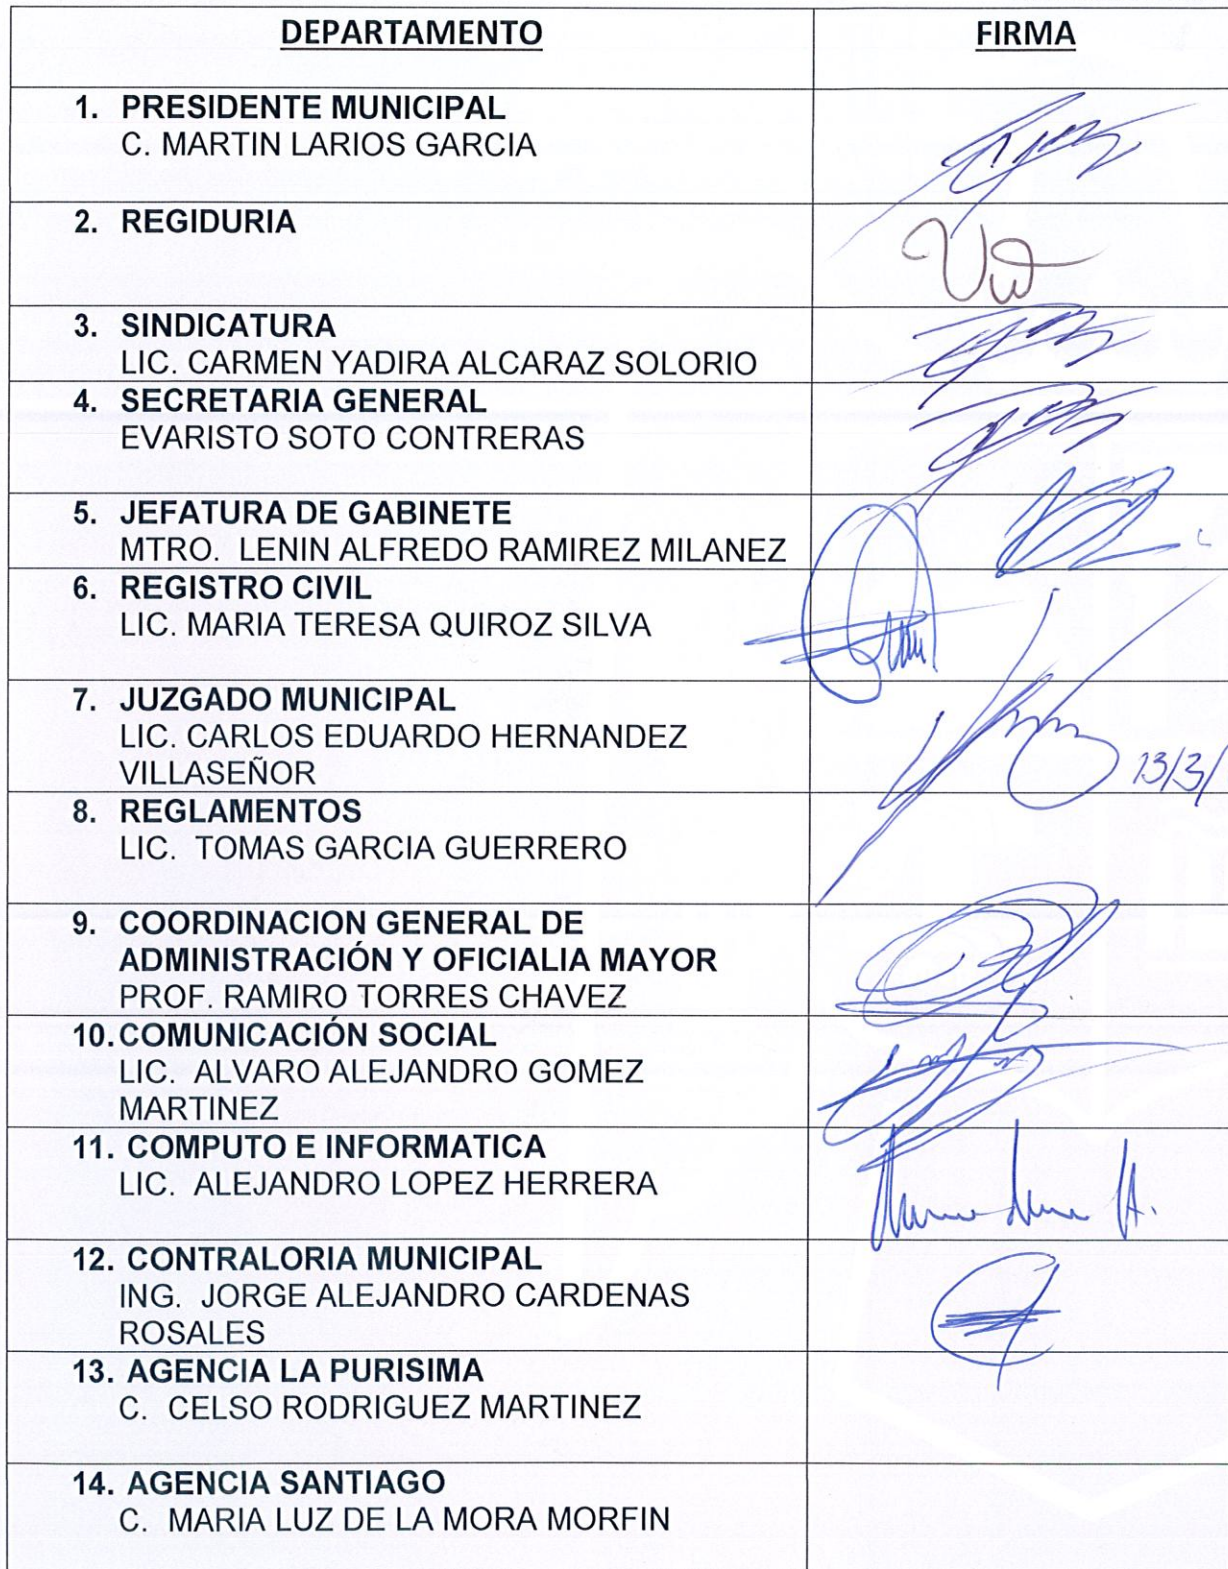 DEPARTAMENTO FIRMA
1. PRESIDENTE MUNICIPAL
C. MARTIN LARIOS GARCIA
2. REGIDURIA
3. SINDICATURA
LIC. CARMEN YADIRA ALCARAZ SOLORIO
4. SECRETARIA GENERAL
EVARISTO SOTO CONTRERAS
5. JEFATURA DE GABINETE
MTRO. LENIN ALFREDO RAMIREZ MILANEZ
6. REGISTRO CIVIL
LIC. MARIA TERESA QUIROZ SILVA
7. JUZGADO MUNICIPAL
LIC. CARLOS EDUARDO HERNANDEZ
VILLASEÑOR
13/3/
8. REGLAMENTOS
LIC. TOMAS GARCIA GUERRERO
9. COORDINACION GENERAL DE
ADMINISTRACIÓN Y OFICIALIA MAYOR
PROF. RAMIRO TORRES CHAVEZ
10. COMUNICACIÓN SOCIAL
LIC. ALVARO ALEJANDRO GOMEZ
MARTINEZ
11. COMPUTO E INFORMATICA
LIC. ALEJANDRO LOPEZ HERRERA
12. CONTRALORIA MUNICIPAL
ING. JORGE ALEJANDRO CARDENAS
ROSALES
13. AGENCIA LA PURISIMA
C. CELSO RODRIGUEZ MARTINEZ
14. AGENCIA SANTIAGO
C. MARIA LUZ DE LA MORA MORFIN